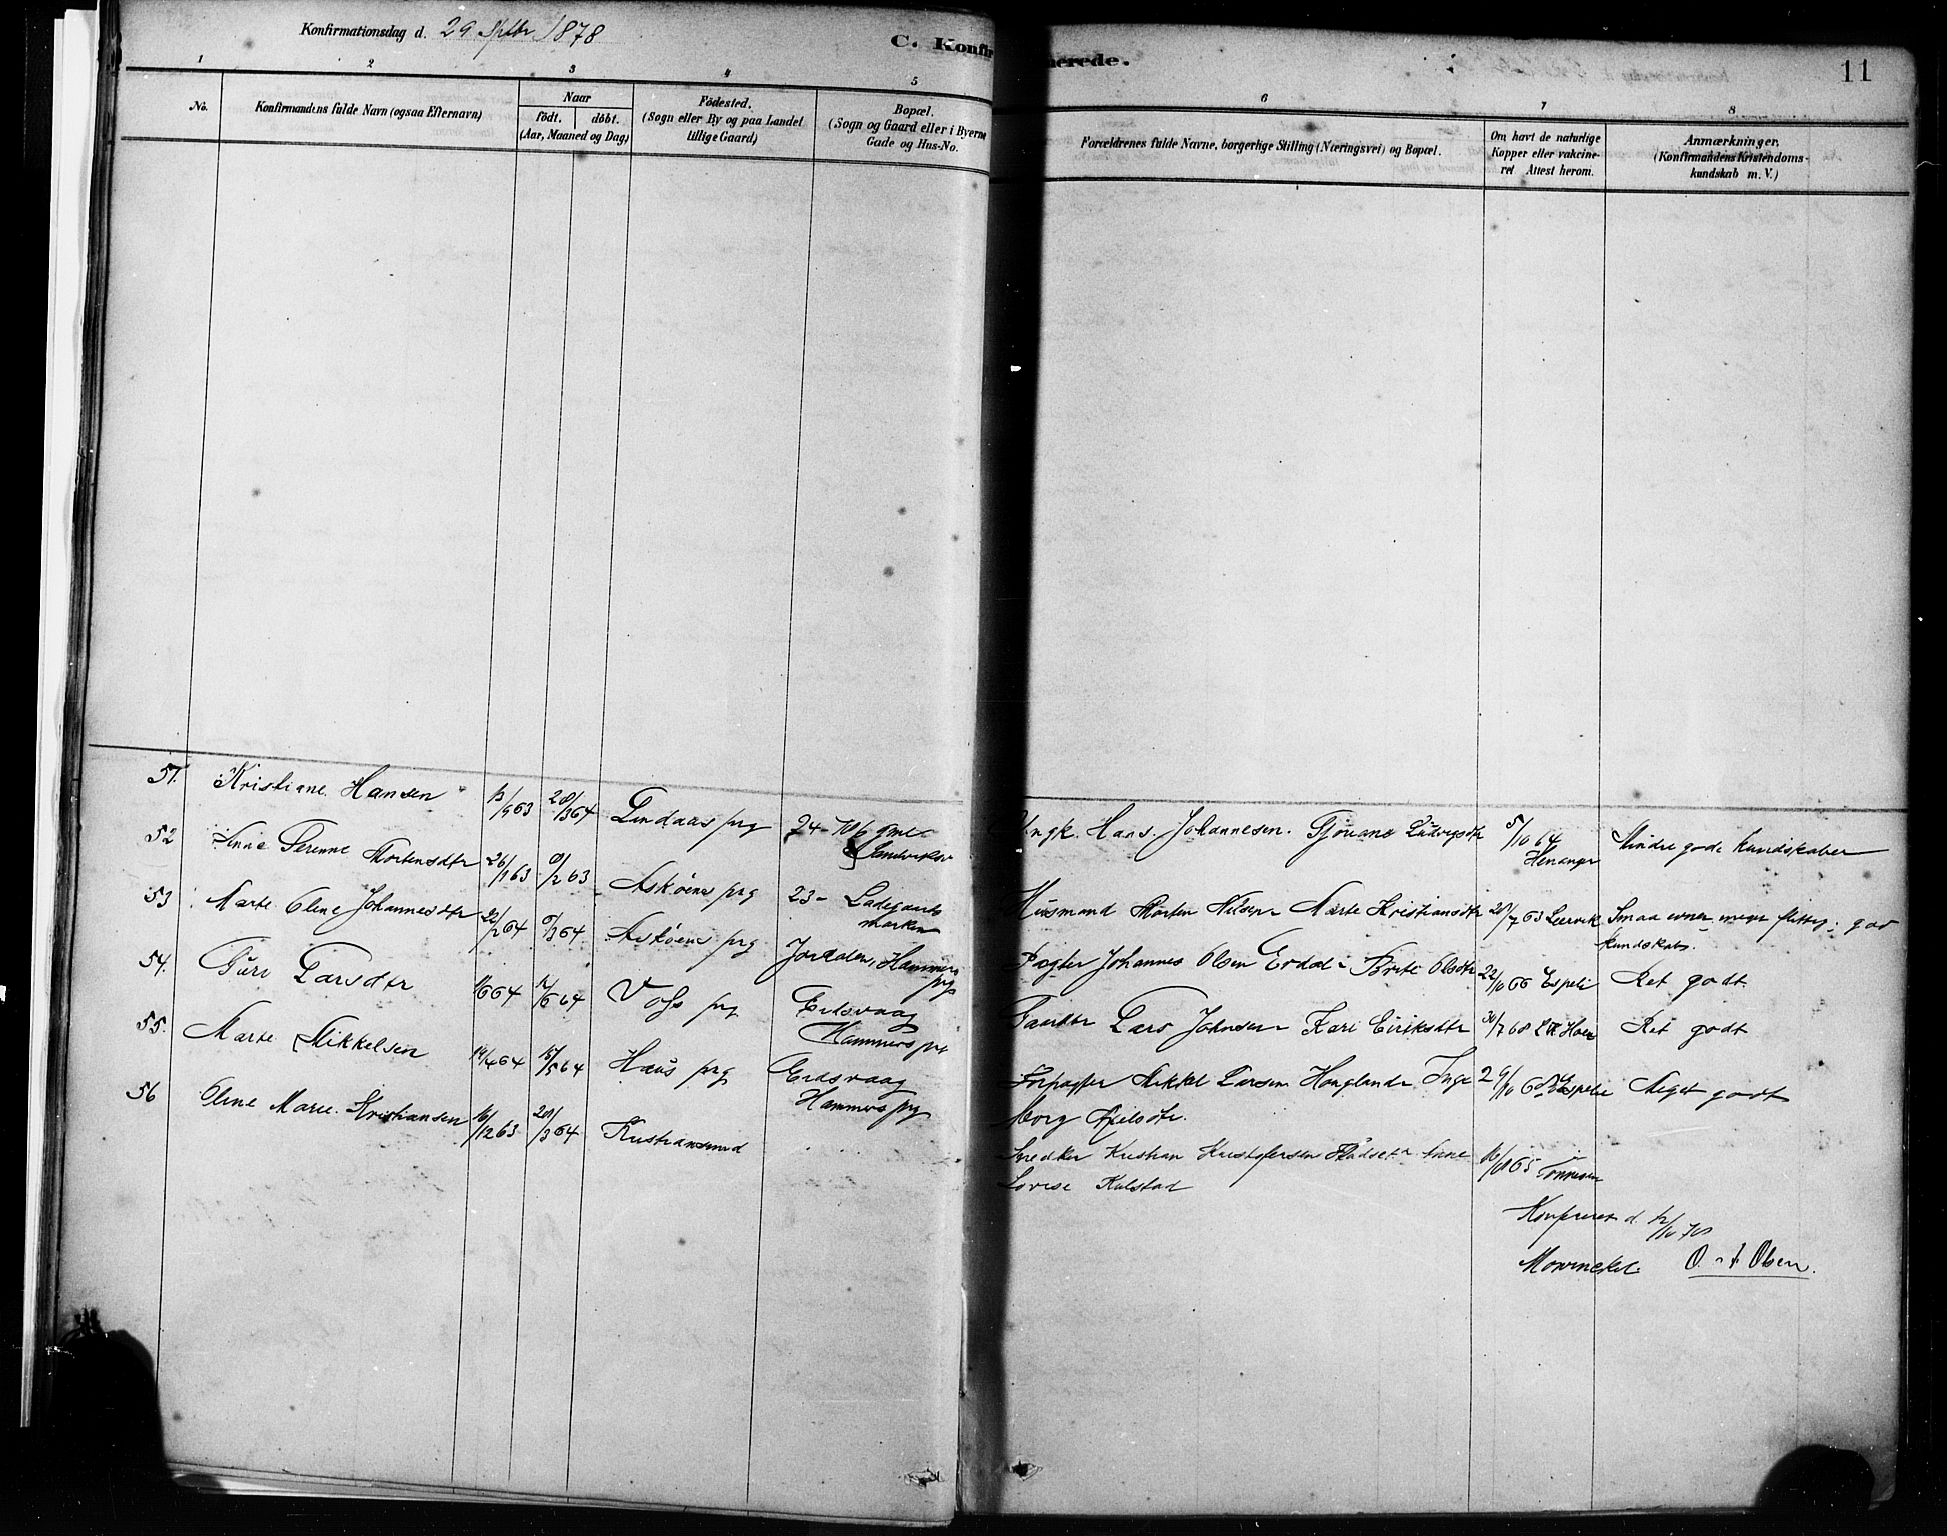 Konfirmationsdag d. 29 Septbr 1878
C. Konfirmerede.
11
1 2 3 4 5 6 7 8
No.
Konfirmandens fulde Navn (ogsaa Efternavn)
Naar
födt. döbt.
(Aar, Maaned og Dag)
Födested.
(Sogn eller By og paa Landet
tillige Gaard)
Bopæl.
(Sogn og Gaard eller i Byerne
Gade og Hus-No.
Forældrenes fulde Navne, borgerlige Stilling (Næringsvei) og Bopæl.
Om havt de naturlige
Kopper eller vakcine-
ret Attest herom.
Anmærkninger.
(Konfirmandens Kristendoms-
kundskab m. V.)
51. Kristiane Hansen 13/963 28/364 Lindaas prg 24-
Sandviksv
Ungk. Hans Johannesen Ludvigsdtr 5/1064 Mindre gode Kundskaber
52 Anne Serenne Mortensdtr 26/163 8/263 Askøens prg 23- Ladegaards
marken
Husmand Morten Nilsen Marte Kristiansdtr 28/763 Leervik Smaa evner meget flittig, god
kundskab.
53 Marte Oline Johannesdtr 22/264 6/364 Askøens prg Jordalen, Hammers
prg
Pagter Johannes Olsen Erdal Brite Olsdtr 22/1066 Espeli Ret godt
54. Turi Larsdtr 1/664 12/664 Voss prg Eidsvaag
Hammers prg
Lars Johnsen Kari Eiriksdtr 30/768 Ret godt
55. Marte Mikkelsen 14/464 15/564 Haus prg Eidsvaag
Hammers prg
Forpagter Mikkel Larsen Hauglands Inge
borg Axelsdtr. Espelie Meget godt
56 Oline Marie Kristiansen 16/1263 28/364 Kristiansund
Snedker Kristian Kristofersen Anne
Lovise Kalstad
Konfirmeret d.
O Olsen.